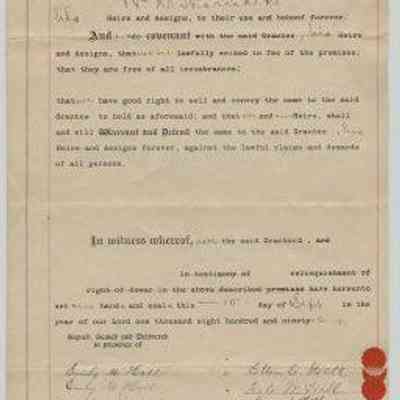 his Heirs and Assigns, to their use and behoof forever.
And do covenant with the said Grantee, his Heirs
and Assigns, that lawfully seized in fee of the premises;
that they are free of all incumbrances;
that have good right to sell and convey the same to the said
Grantee to hold as aforesaid; and that and Heirs, shall
and will Warrant and Defend the same to the said Grantee, his
Heirs and Assigns forever, against the lawful claims and demands
of all persons.
In witness whereof, the said Grantors, and
in testimony of relinquishment of
right of dower in the above described premises have hereunto
set hands and seals this day of Sept in the
year of our Lord one thousand eight hundred and ninety
Signed, Sealed and Delivered
in presence of
Emily M. Holt
Emily M. Holt